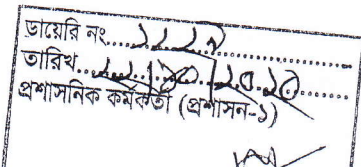 ডায়েরি নং.....১২২৭
তারিখ.....১১/১০/২০২০
প্রশাসনিক কর্মকর্তা (প্রশাসন-১)